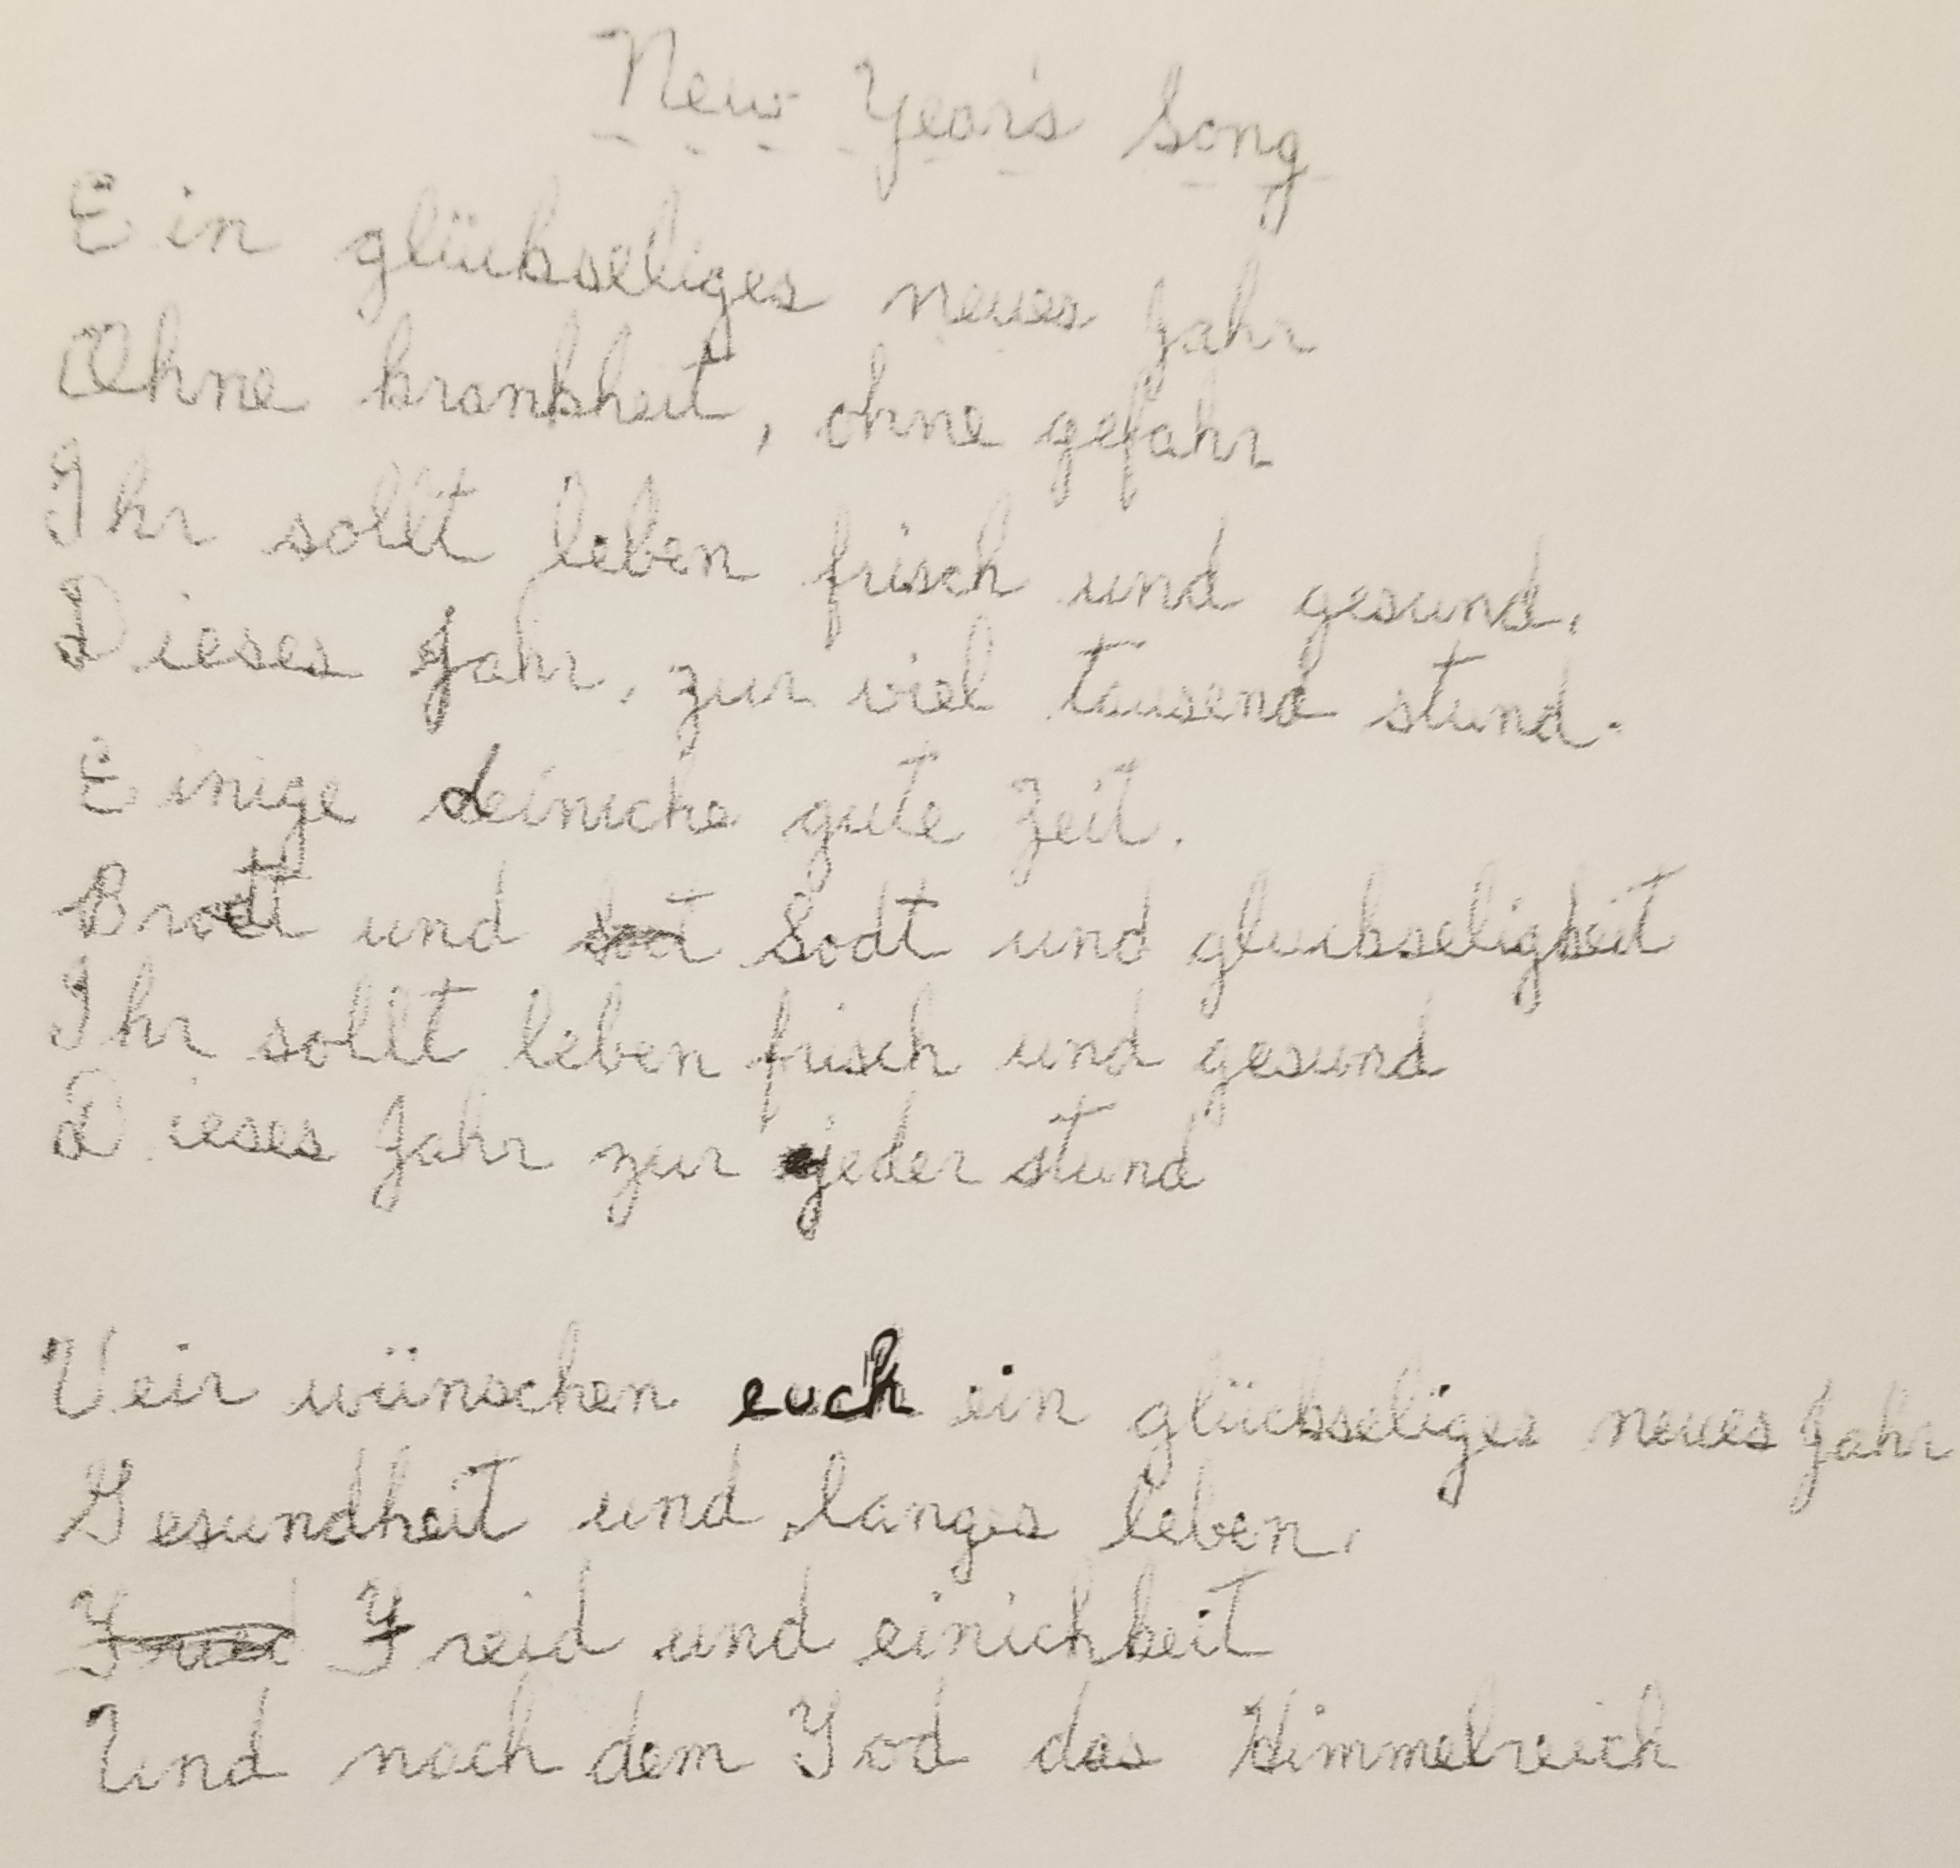 New Year's Song
Ein glückseliges neues Jahr
Ohne krankheit, ohne gefahr
Ihr sollt leben frisch und gesund,
Dieses Jahr, zur viel tausend stund.
Einige deiniche gute Zeit.
Brodt und Sodt und gluckseligkeit
Ihr sollt leben frisch und gesund
Dieses Jahr zur jeder stund
Veir wünschen euch ein glückseliges neues Jahr
Gesundheit und langes leben,
Freid und einichkeit
Und noch dem Tod das Himmelreich